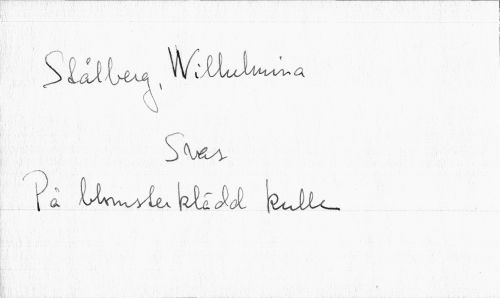 Stålberg, Wilhelmina
Svar
På blomsterklädd kulle